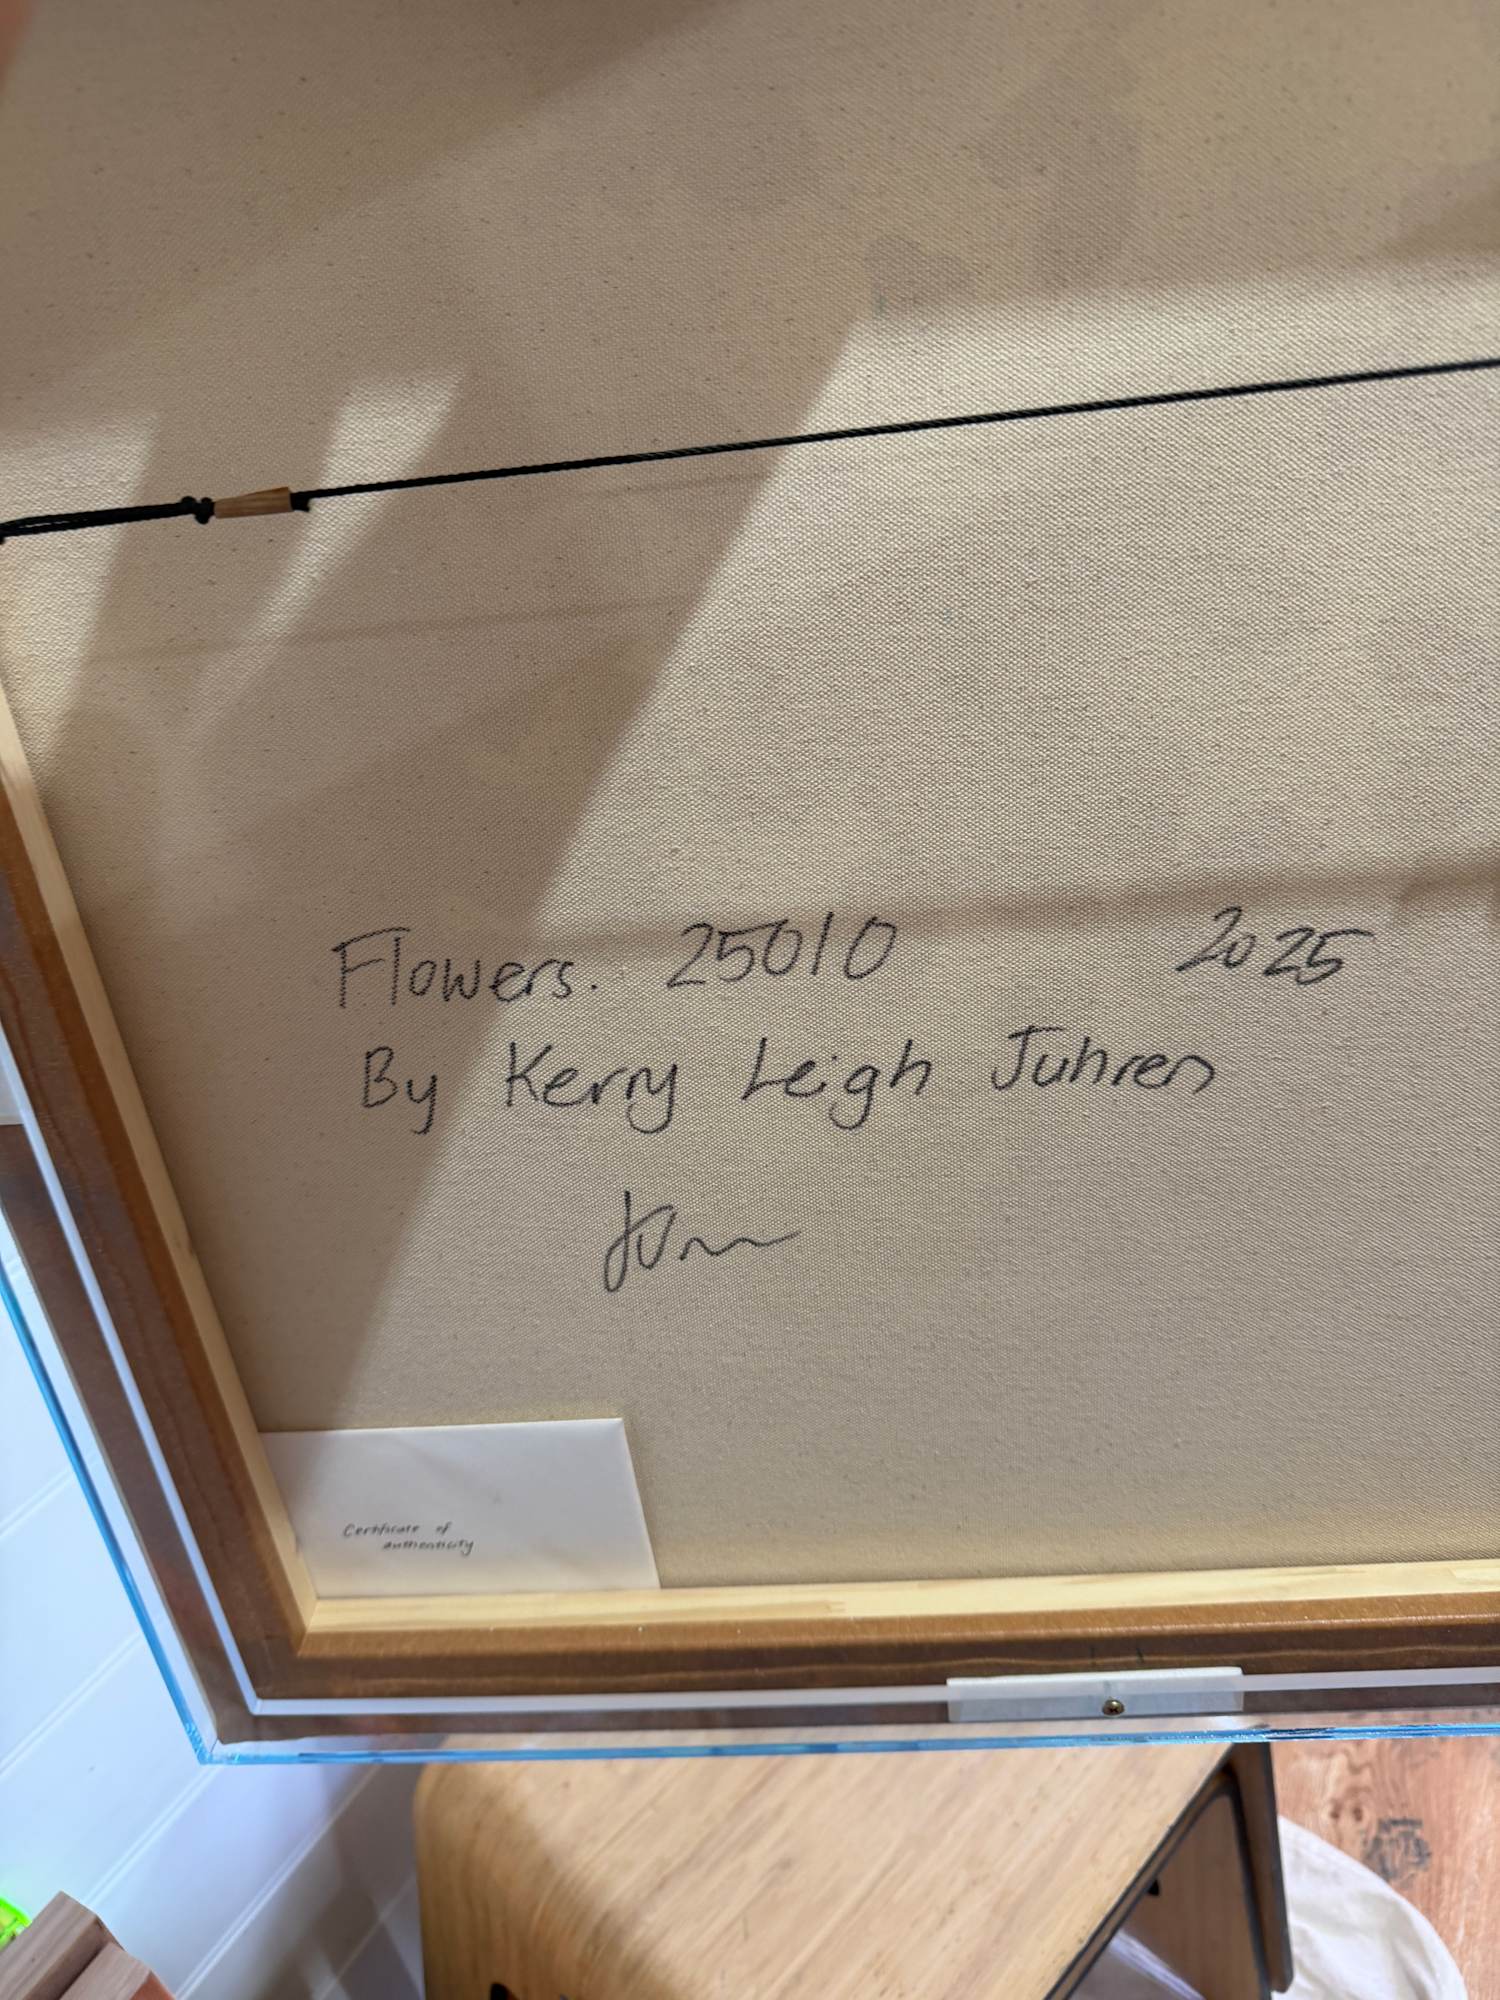 Flowers. 25010 2025
By Kerry Leigh Juhren
Certificate of
authenticity